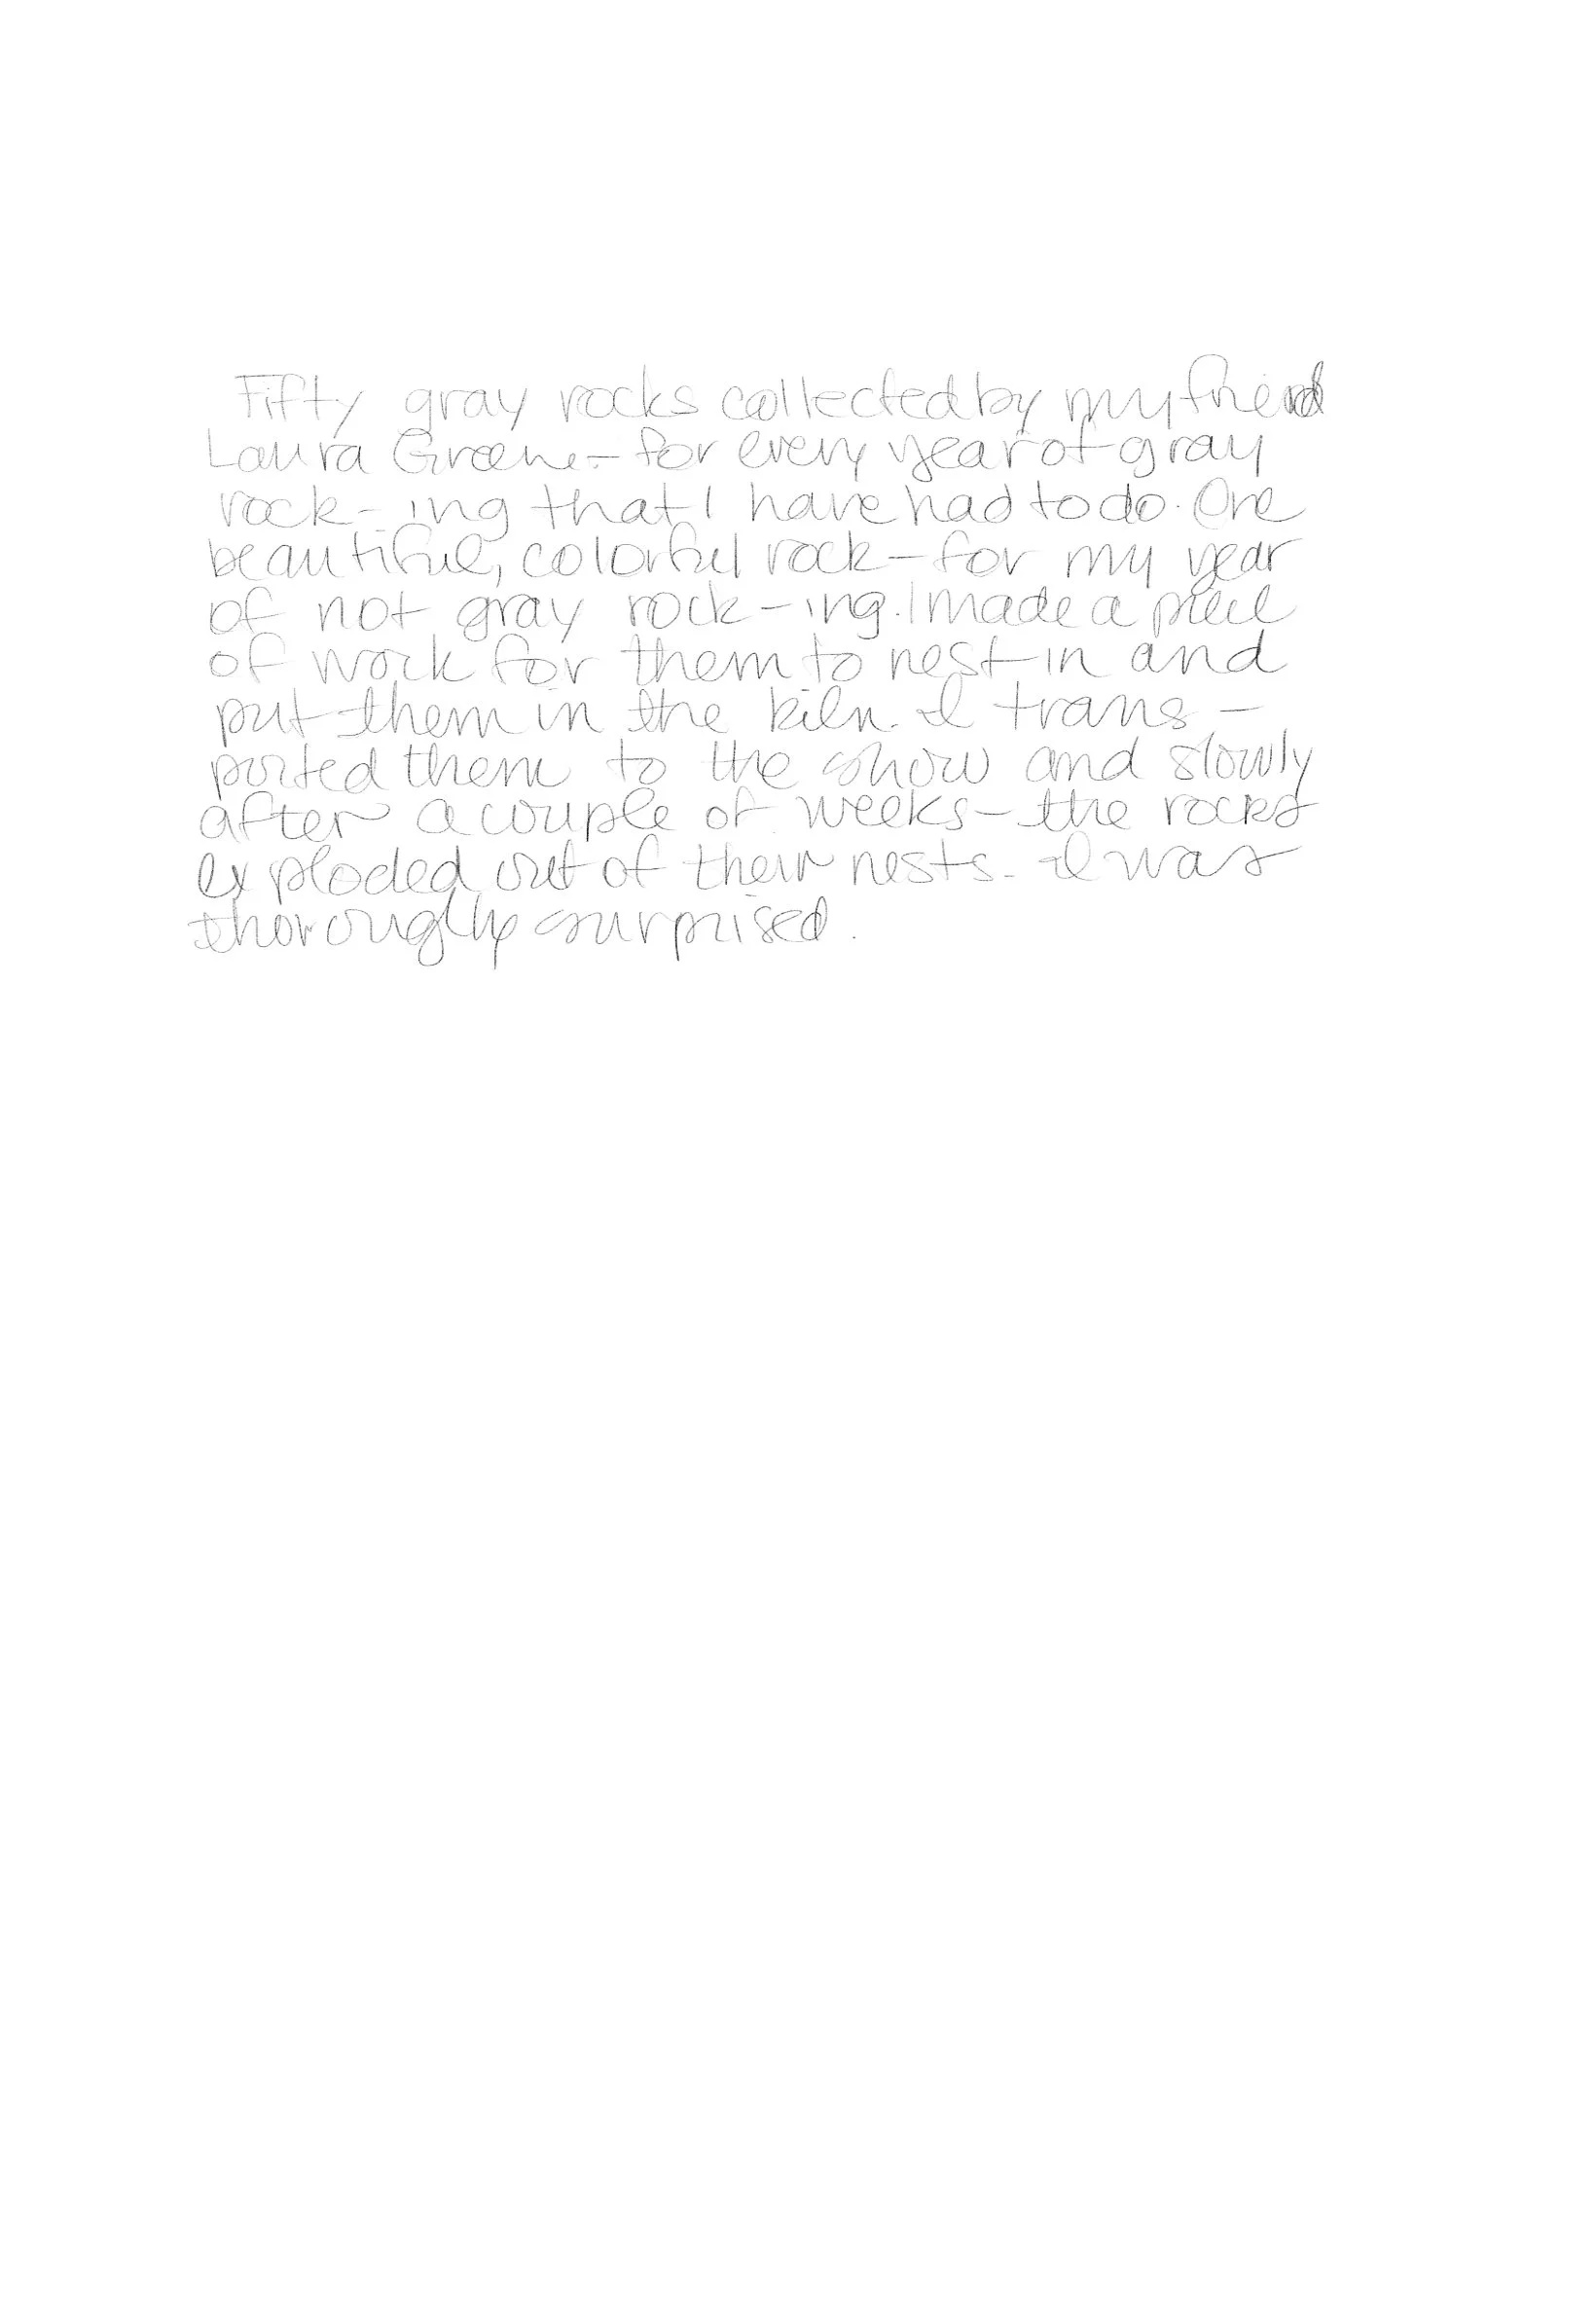 Fifty gray rocks collected by my friend
Laura Greene - for every year of gray
rock-ing that I have had to do. One
beautiful, colorful rock - for my year
of not gray rock-ing. I made a piece
of work for them to nest in and
put them in the kiln. I trans-
ported them to the show and slowly
after a couple of weeks - the rocks
exploded out of their nests. I was
thoroughly surprised.